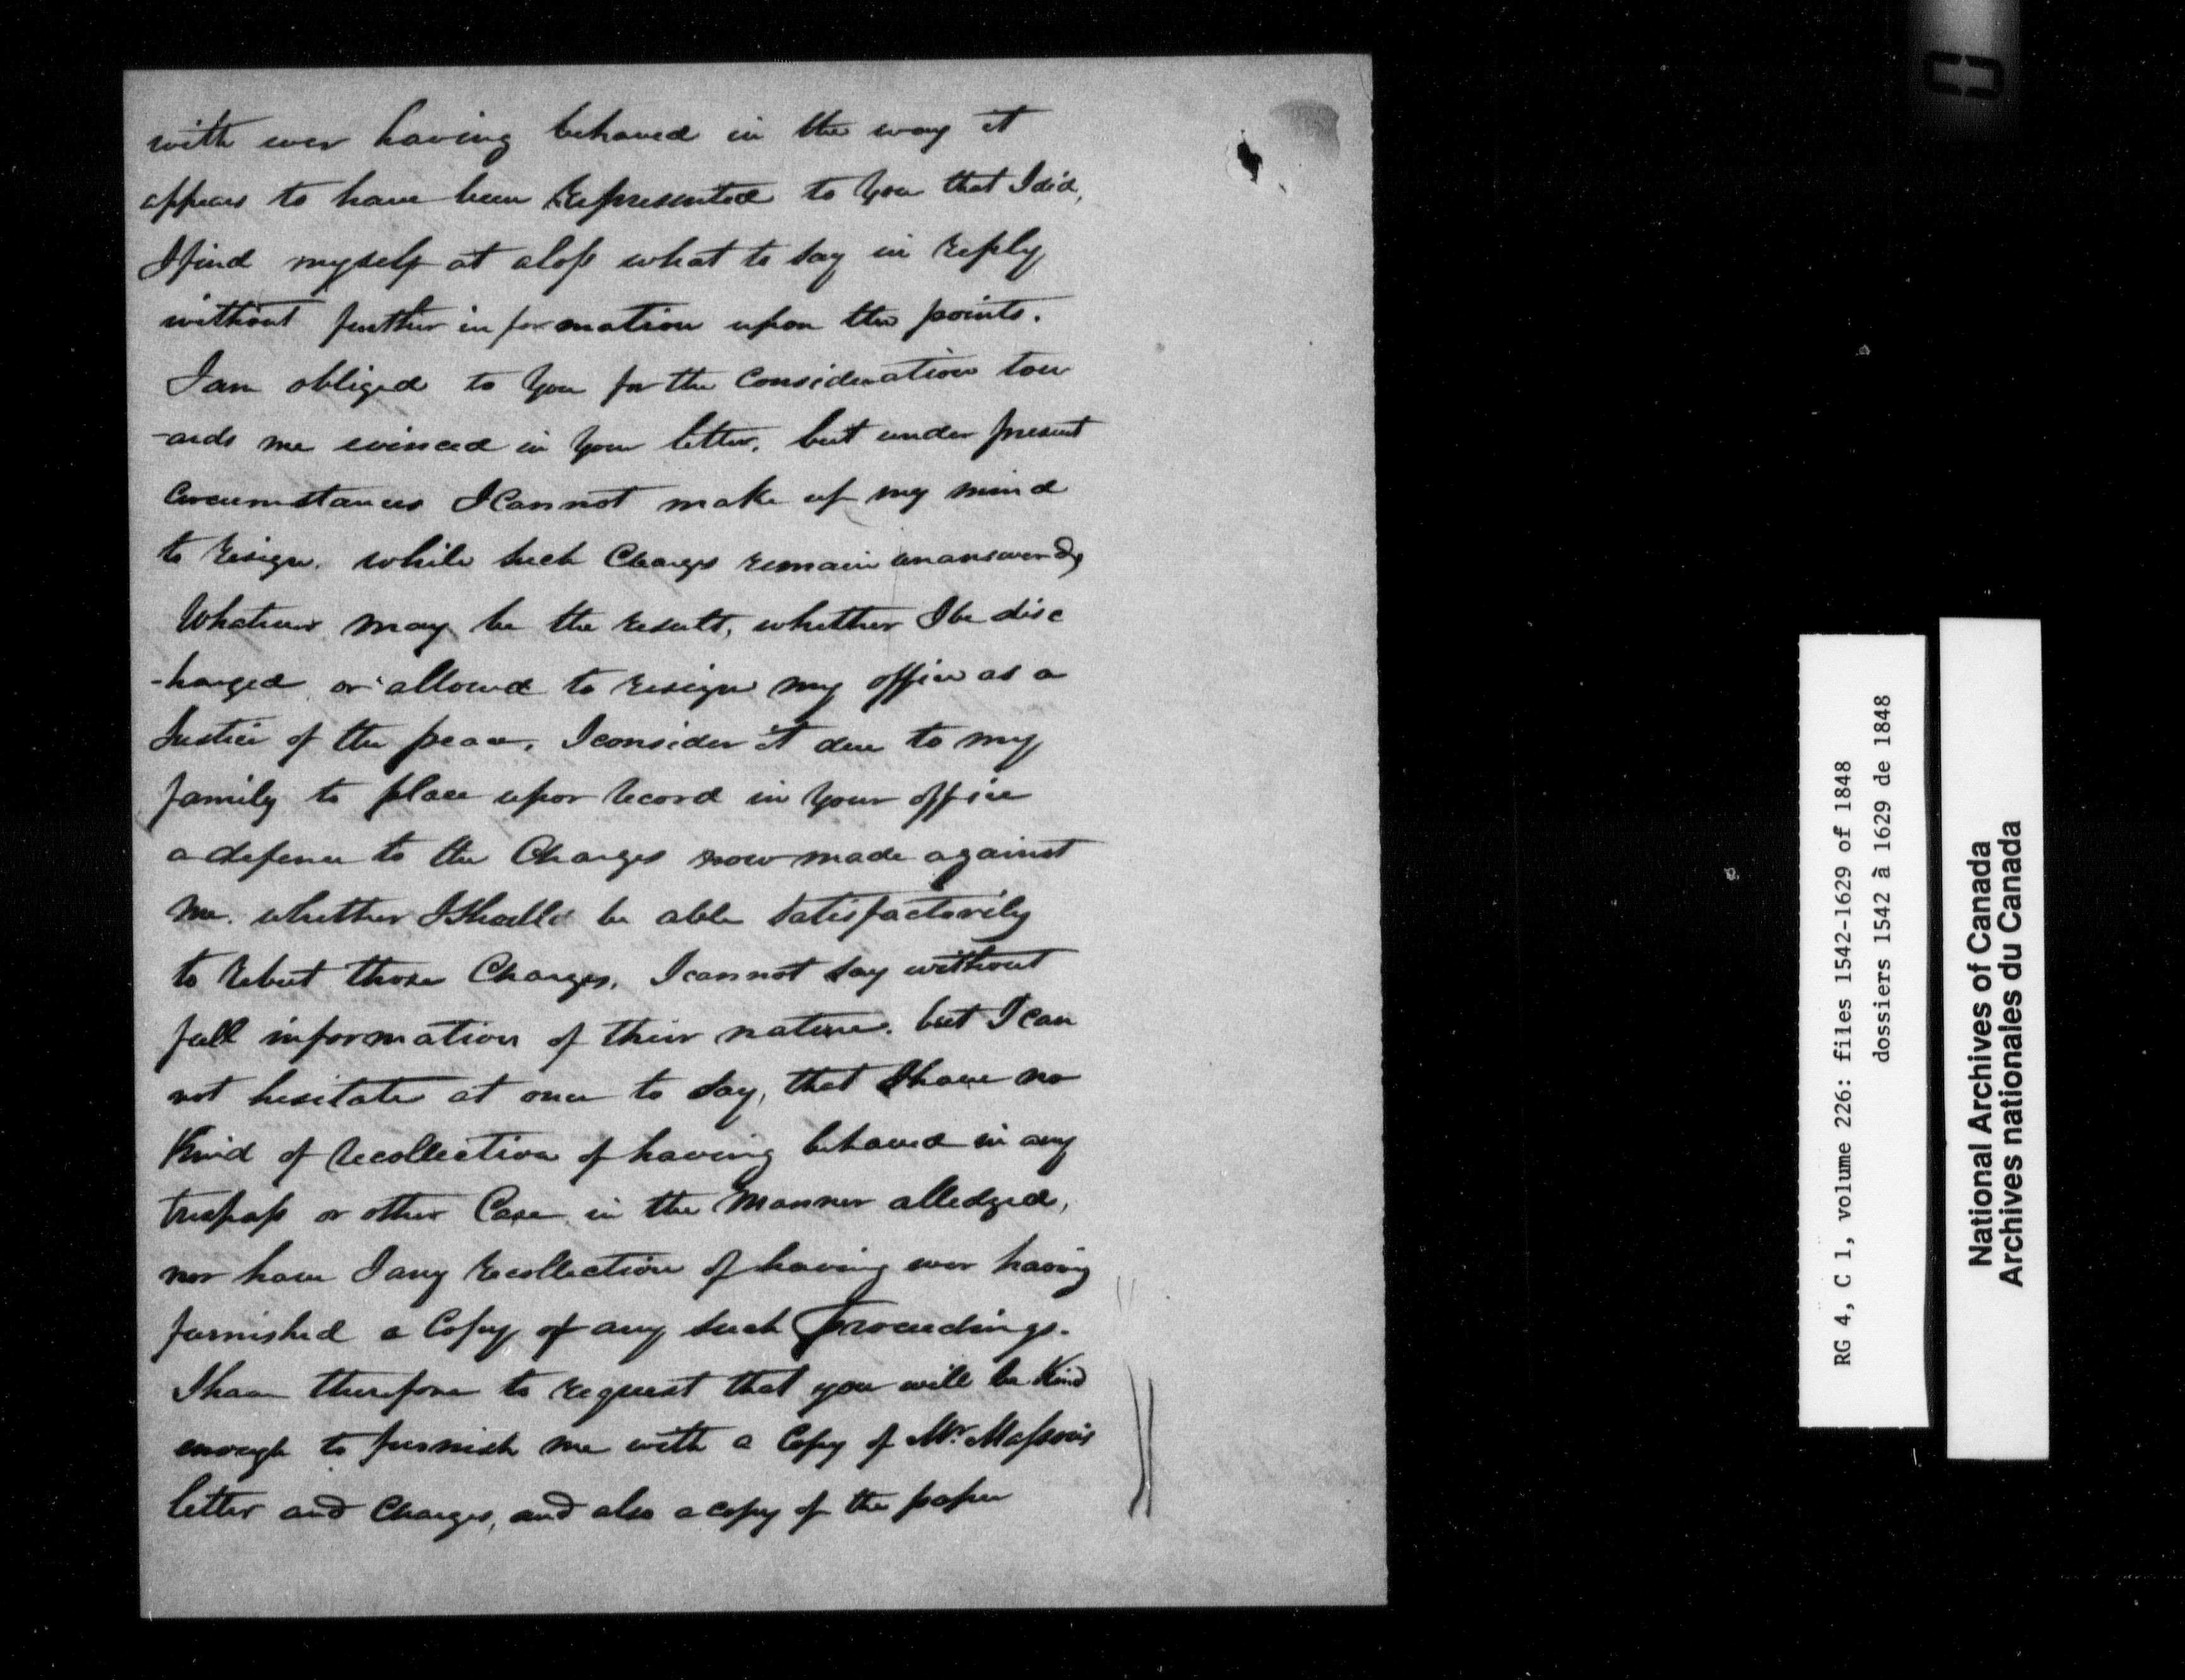 with ever having behaved in the way it
appears to have been Represented to You that I did,
I find myself at a loss what to say in reply
without further information upon the points.
I am obliged to You for the Consideration tow
-ards me evinced in Your letter, but under present
Circumstances I Cannot make up my mind
to resign. while such Charges remain unanswered,
Whatever may be the result, whether I be disc
-harged or allowed to resign my office as a
Justice of the peace, I consider it due to my
family to place upon record in Your office
a defence to the Charges now made against
me. whether I Shall be able Satisfactorily
to rebut those Charges, I cannot say without
full information of their nature. but I can
not hesitate at once to say, that I have no
Kind of recollection of having behaved in any
trespass or other Case in the Manner alledged,
nor have I any recollection of having ever having
furnished a Copy of any such Proceedings.
I have therefore to request that you will be Kind
enough to furnish me with a Copy of Mr. Masson's
letter and Charges, and also a copy of the paper
RG 4, C 1, volume 226: files 1542-1629 of 1848
dossiers 1542 à 1629 de 1848
National Archives of Canada
Archives nationales du Canada